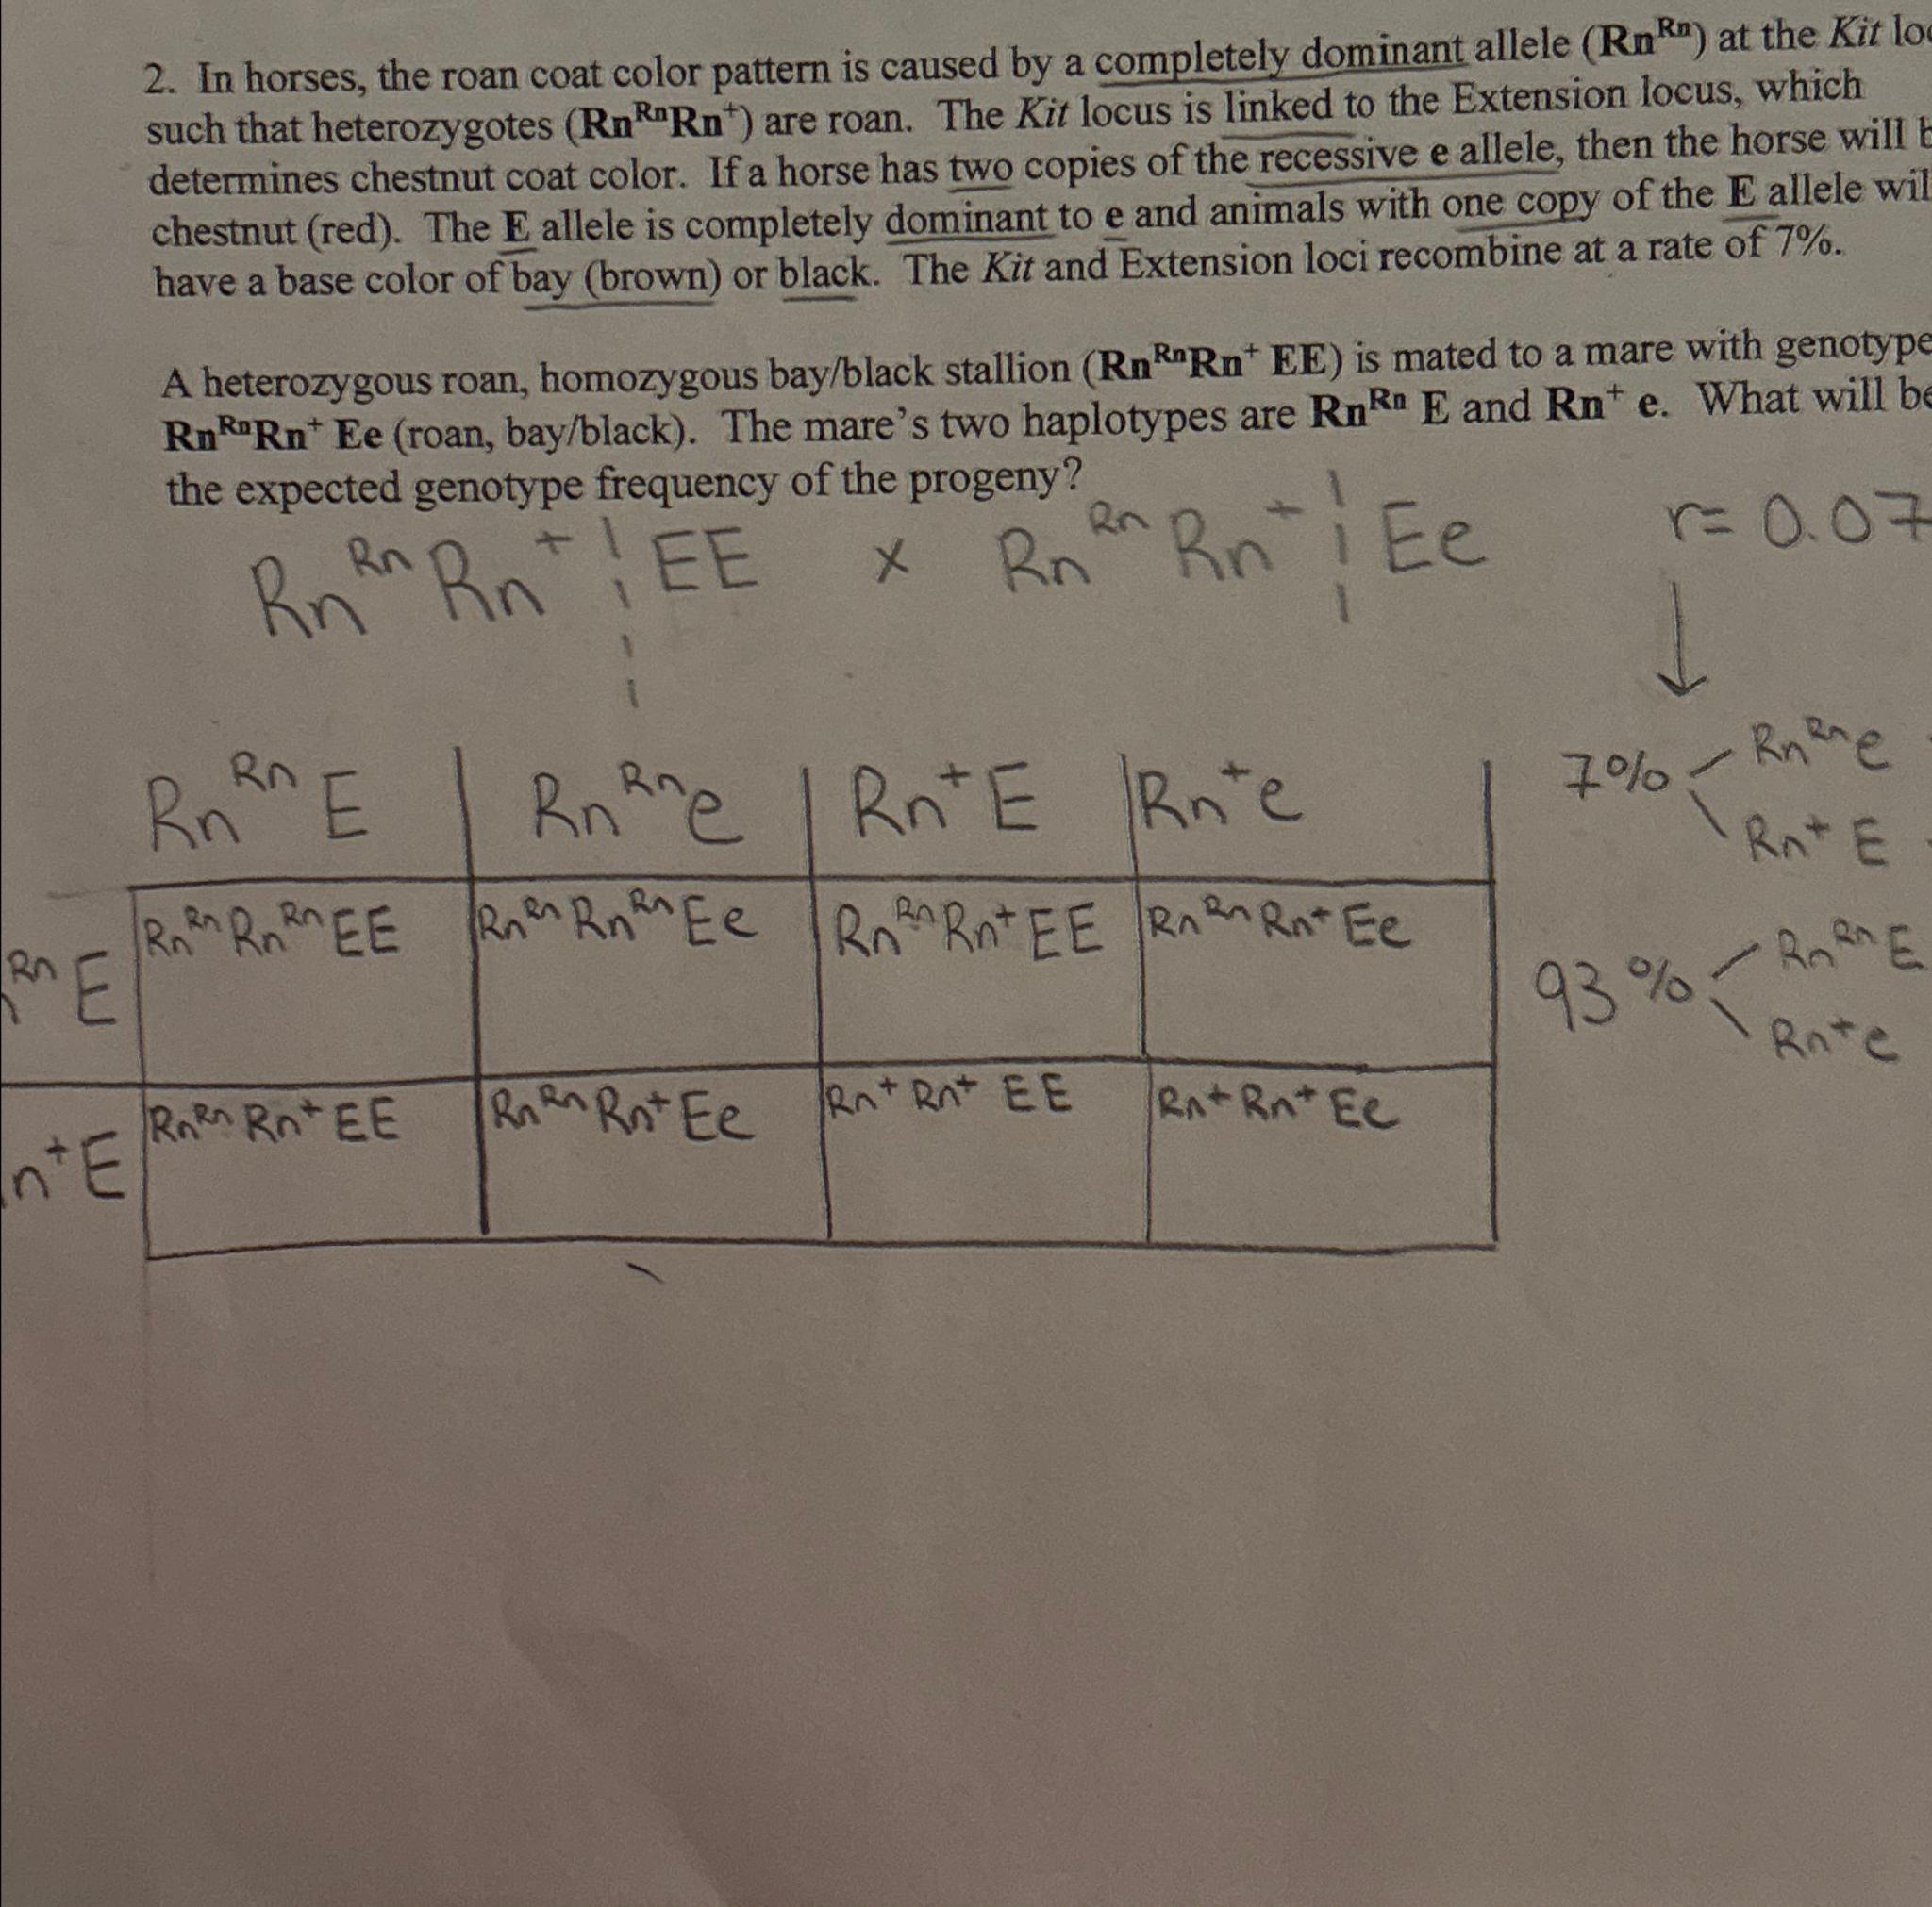 2. In horses, the roan coat color pattern is caused by a completely dominant allele (Rn^Rn) at the Kit
such that heterozygotes (Rn^Rn Rn^+) are roan. The Kit locus is linked to the Extension locus, which
determines chestnut coat color. If a horse has two copies of the recessive e allele, then the horse will
chestnut (red). The E allele is completely dominant to e and animals with one copy of the E allele
have a base color of bay (brown) or black. The Kit and Extension loci recombine at a rate of 7%.
A heterozygous roan, homozygous bay/black stallion (Rn^Rn Rn^+ EE) is mated to a mare with genotype
Rn^Rn Rn^+ Ee (roan, bay/black). The mare's two haplotypes are Rn^Rn E and Rn^+ e. What will
the expected genotype frequency of the progeny?
Rn^Rn Rn^+ EE x Rn^Rn Rn^+ Ee r = 0.07
7% Rn^Rn e
Rn^+ E
Rn^Rn E Rn^Rn e Rn^+ E Rn^+ e
Rn^Rn Rn^Rn EE Rn^Rn Rn^Rn Ee Rn^Rn Rn^+ EE Rn^Rn Rn^+ Ee
Rn E
93% Rn^Rn E
Rn^+ e
Rn^Rn Rn^+ EE Rn^Rn Rn^+ Ee Rn^+ Rn^+ EE Rn^+ Rn^+ Ee
n^+ E